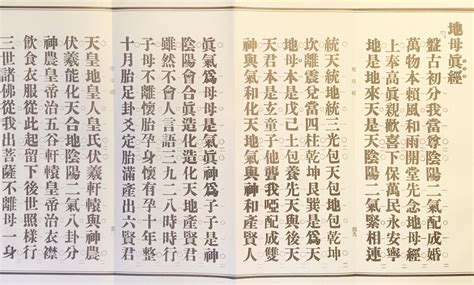 地母眞經
盤古初分我當尊陰陽二氣配成婚
萬物本賴風和雨開堂先念地母經
上奉高眞親歡喜下保萬民永安寧
地是地來天是天陰陽二氣緊相連
統天統地統三光包天包地
坎離震兌當四柱乾坤艮巽是為天
地母本是戊己土包養先天與後天
天君本是玄童子他聾我啞配成雙
神與氣和化天地氣與神和產賢人
眞氣為母母是氣眞神為子子是神
陰陽會合眞造化造化天地產賢君
雖然不會人言語三九二八時時行
子母不離懷胎孕身懷有孕十年整
十月胎足卦爻定胎滿產出六賢君
天皇地皇人皇氏伏羲軒轅與神農
伏羲能化天合地陰陽二氣八卦分
神農皇帝治五谷軒轅皇帝治衣襟
飲食衣服從此起留下後世照樣行
三世諸佛從我出菩薩不離母一身